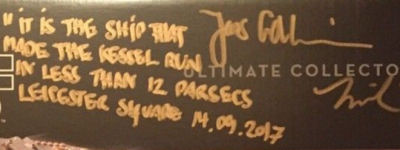 "IT IS THE SHIP THAT
MADE THE KESSEL RUN
IN LESS THAN 12 PARSECS
LEICESTER SQUARE 14.09.2017
ULTIMATE COLLECTO